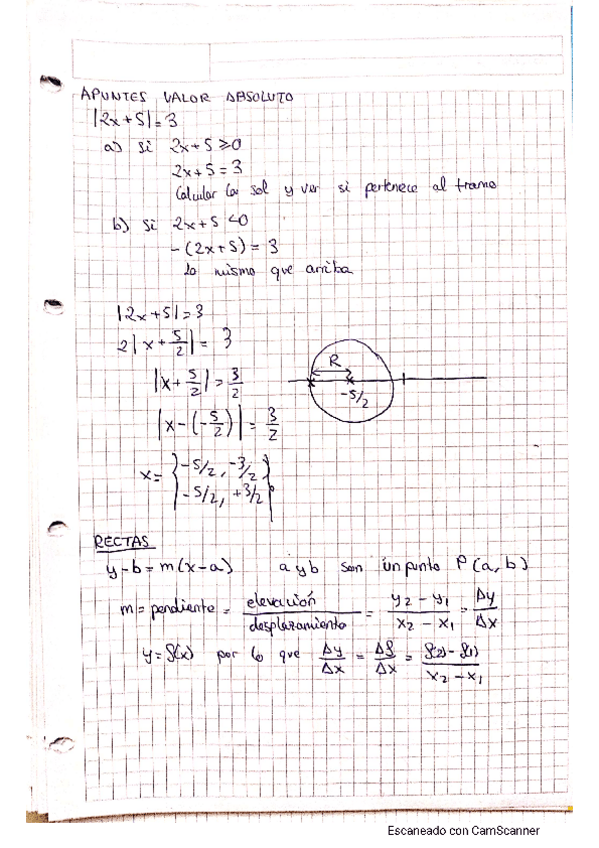 APUNTES VALOR ABSOLUTO
|2x+5|=3
a) si 2x+5 ≥0
2x+5=3
Calcular la sol y ver si pertenece al tramo
b) si 2x+5 <0
-(2x+5) = 3
lo mismo que arriba
|2x+5|=3
2|x+5/2| = 3
|x+5/2| = 3/2
|x-(-5/2)| = 3/2
x= { -5/2, -3/2
-5/2, +3/2 }
R
-5/2
RECTAS
y-b=m(x-a) a y b son un punto P(a,b)
m = pendiente = elevación/desplazamiento = y2-y1/x2-x1 = Δy/Δx
y=f(x) por lo que Δy/Δx = Δf/Δx = f(2)-f(1)/x2-x1
Escaneado con CamScanner